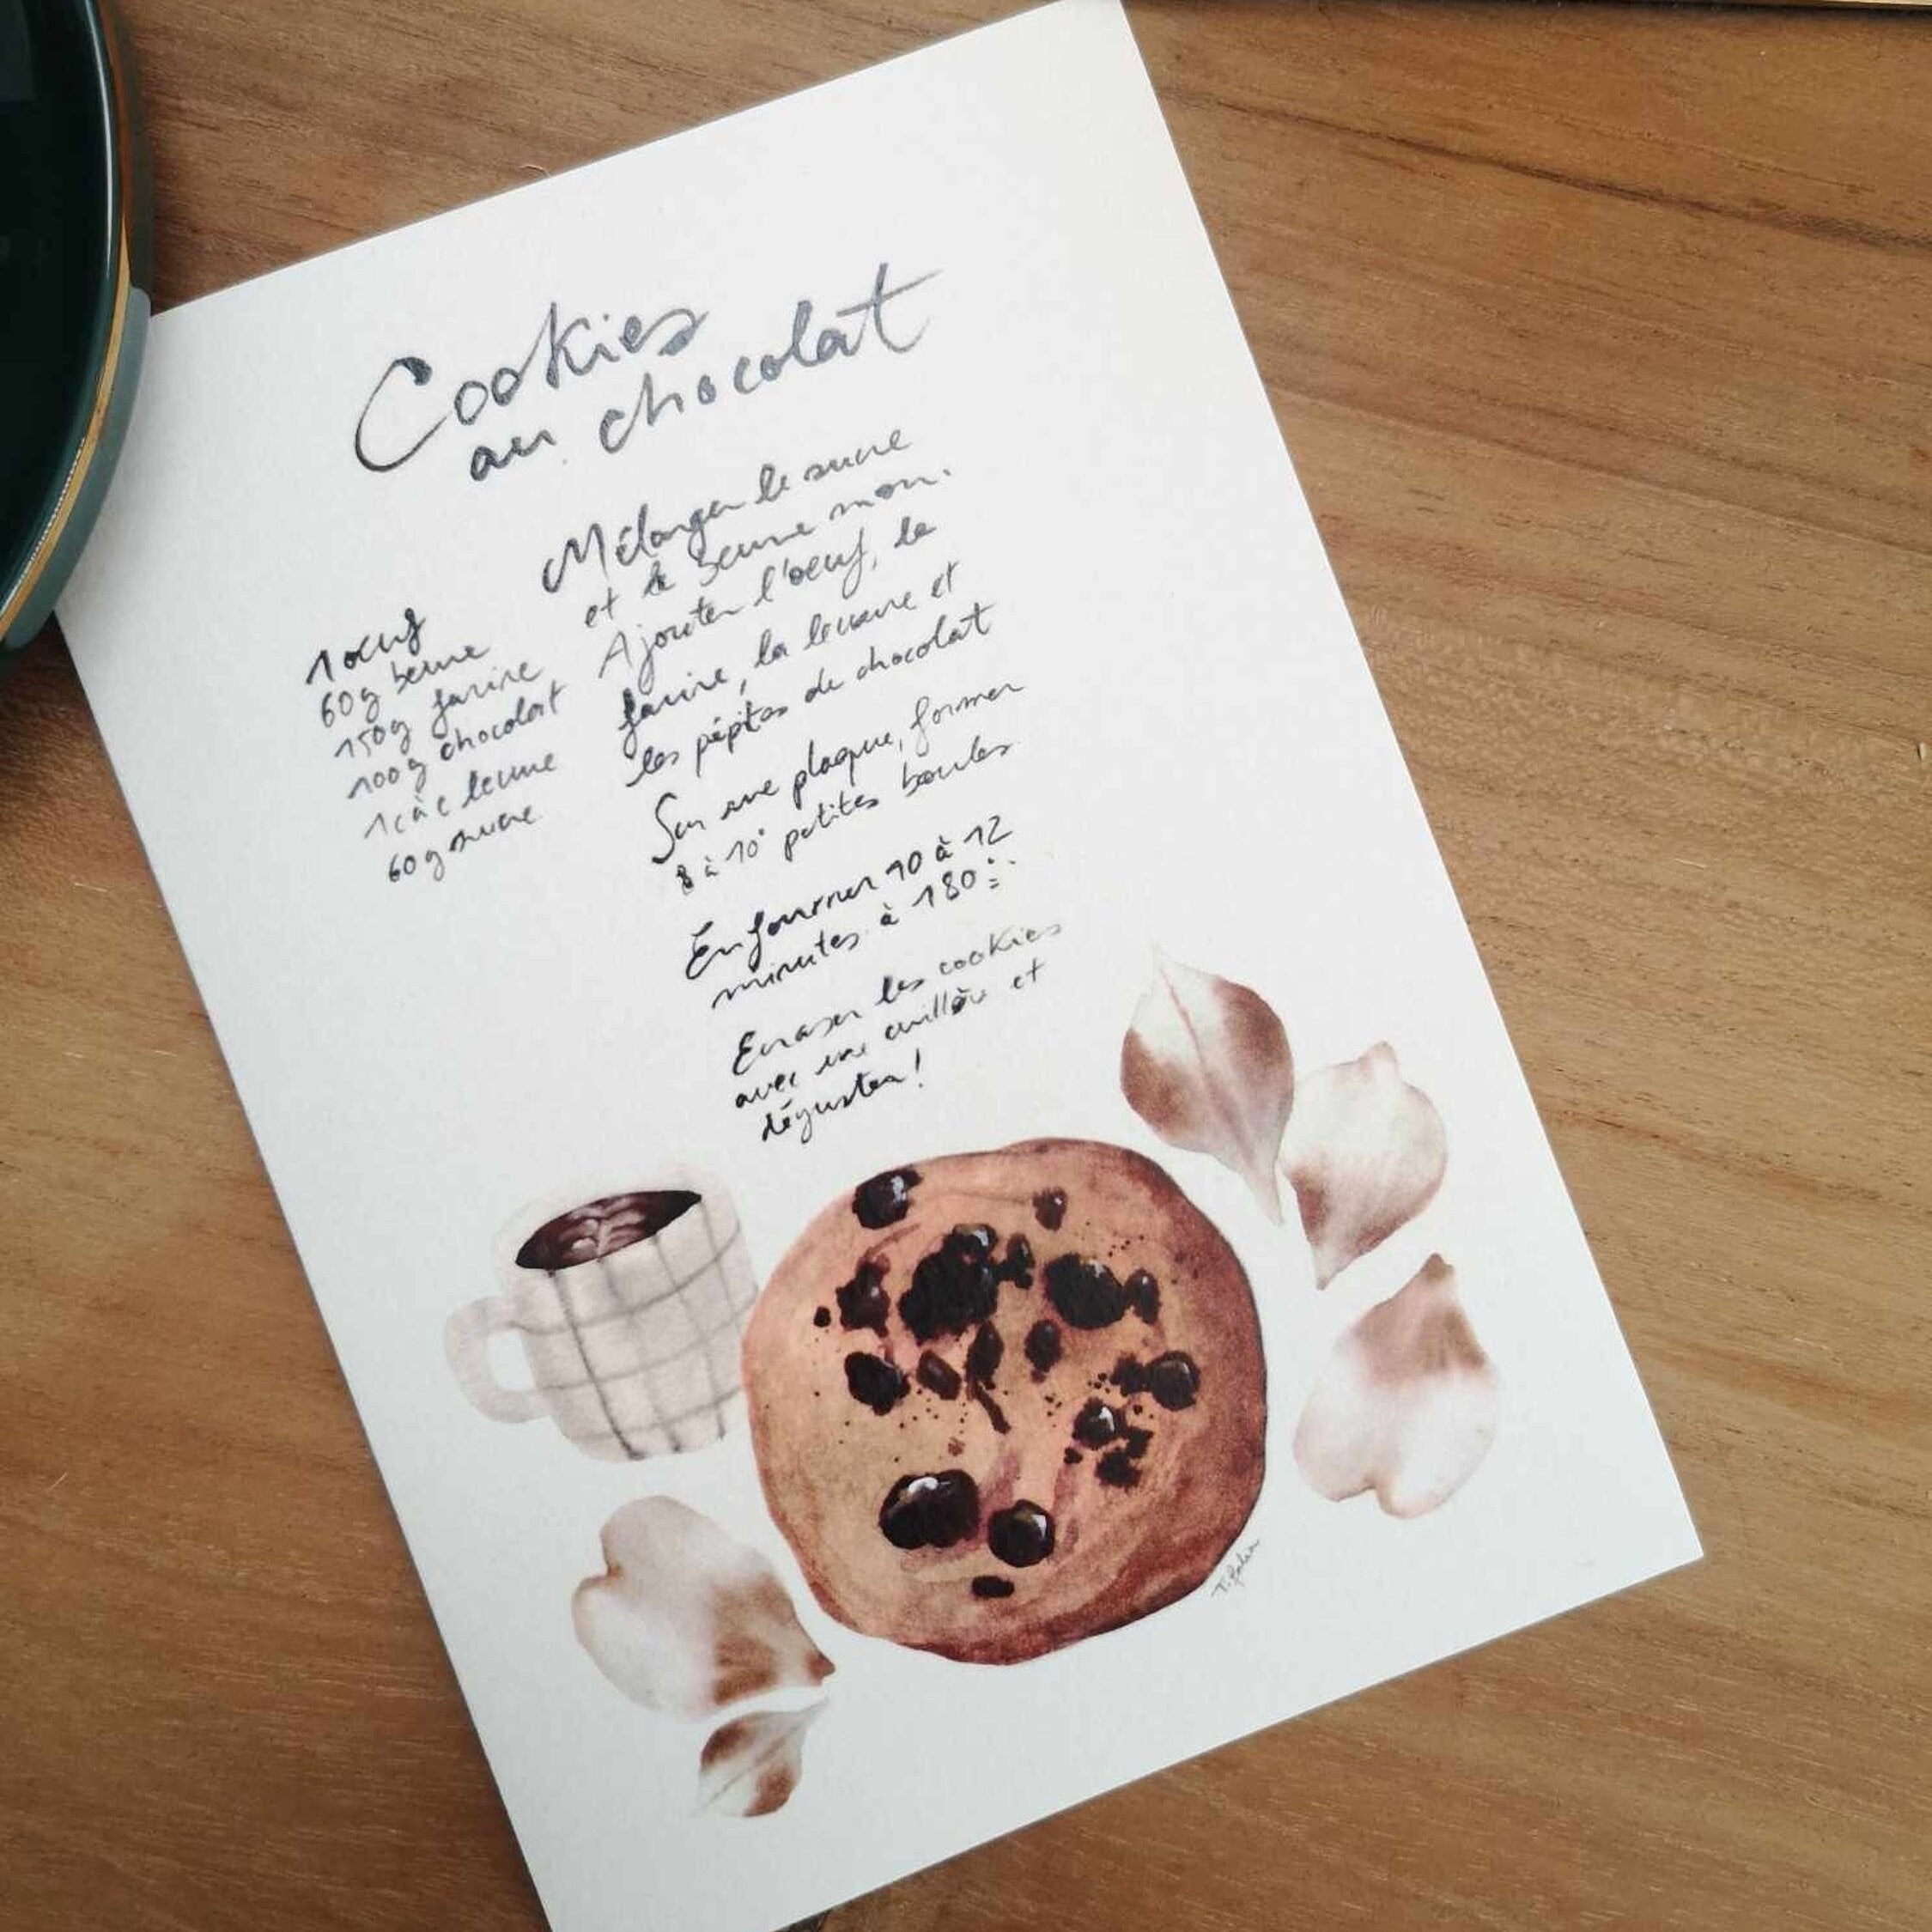 Cookies
au chocolat
1 oeuf
60g beurre
150g farine
100g chocolat
1 c à c levure
60g sucre
Mélanger le sucre
et le beurre mou.
Ajouter l'oeuf, la
farine, la levure et
les pépites de chocolat
Sur une plaque, former
8 à 10 petites boules
Enfourner 10 à 12
minutes à 180
Ecraser les cookies
avec une cuillère et
déguster !